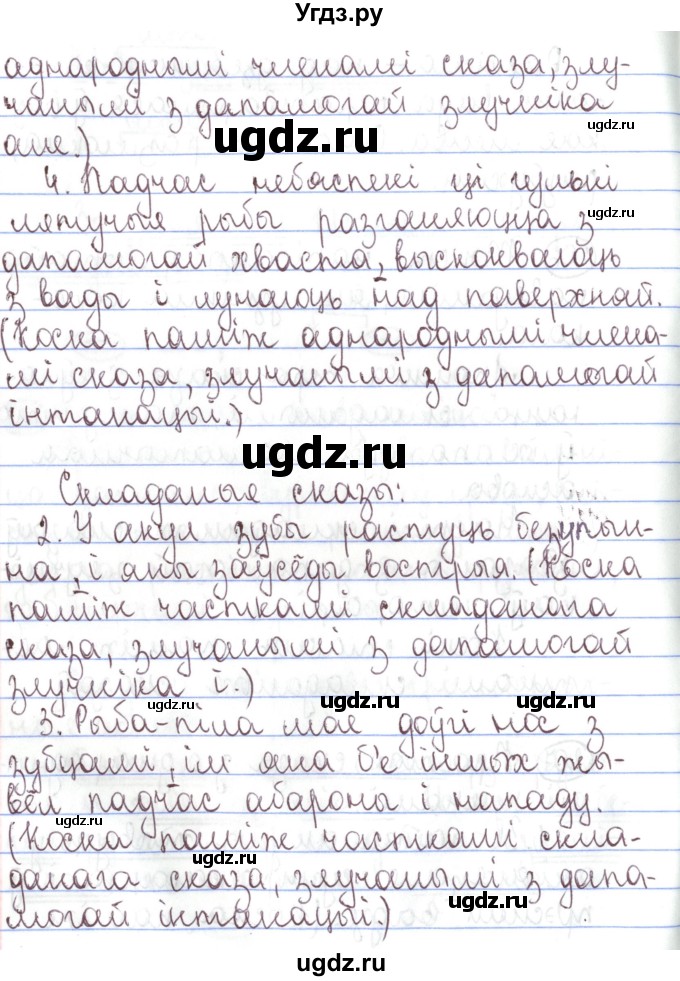 Угдз.ру
аднароднымі членамі сказа, злу-
чанымі з дапамогай злучніка
але.)
ugdz.ru
ugdz.ru
4. Падчас небяспекі ці гульні
ugdz.ru
лятучыя рыбы разганяюцца з
дапамогай хваста, выскокваюць
з вады і лунаюць над паверхняй.
(Коска паміж аднароднымі члена-
мі сказа, злучанымі з дапамогай
інтанацыі.)
ugdz.ru
Складаныя сказы:
2. У акул зубы растуць безупын-
на, і яны заўсёды вострыя (Коска
паміж часткамі складанага
сказа, злучанымі з дапамогай
злучніка і.)
ugdz.ru
ugdz.ru
3. Рыба-піла мае доўгі нос з
зубцамі, ім яна б'е іншых жы-
вёл падчас абароны і нападу.
ugdz.ru
(Коска паміж часткамі скла-
ugdz.ru
данага сказа, злучанымі з дапа-
могай інтанацыі.)
ugdz.ru
ugdz.ru